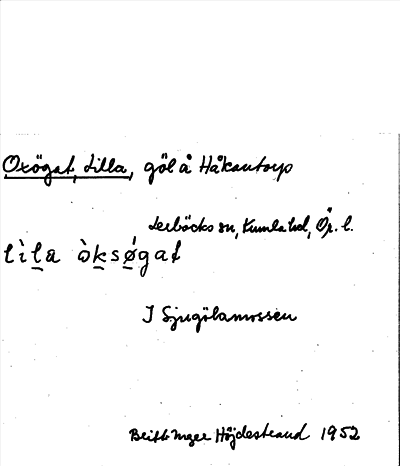 Oxögat, Lilla, göl å Håkantorp
Lerbäcks sn, Kumla hd, Ör. l.
lìla òksǿgat
I Sjugölamossen
Britt Inger Höjdestrand 1952